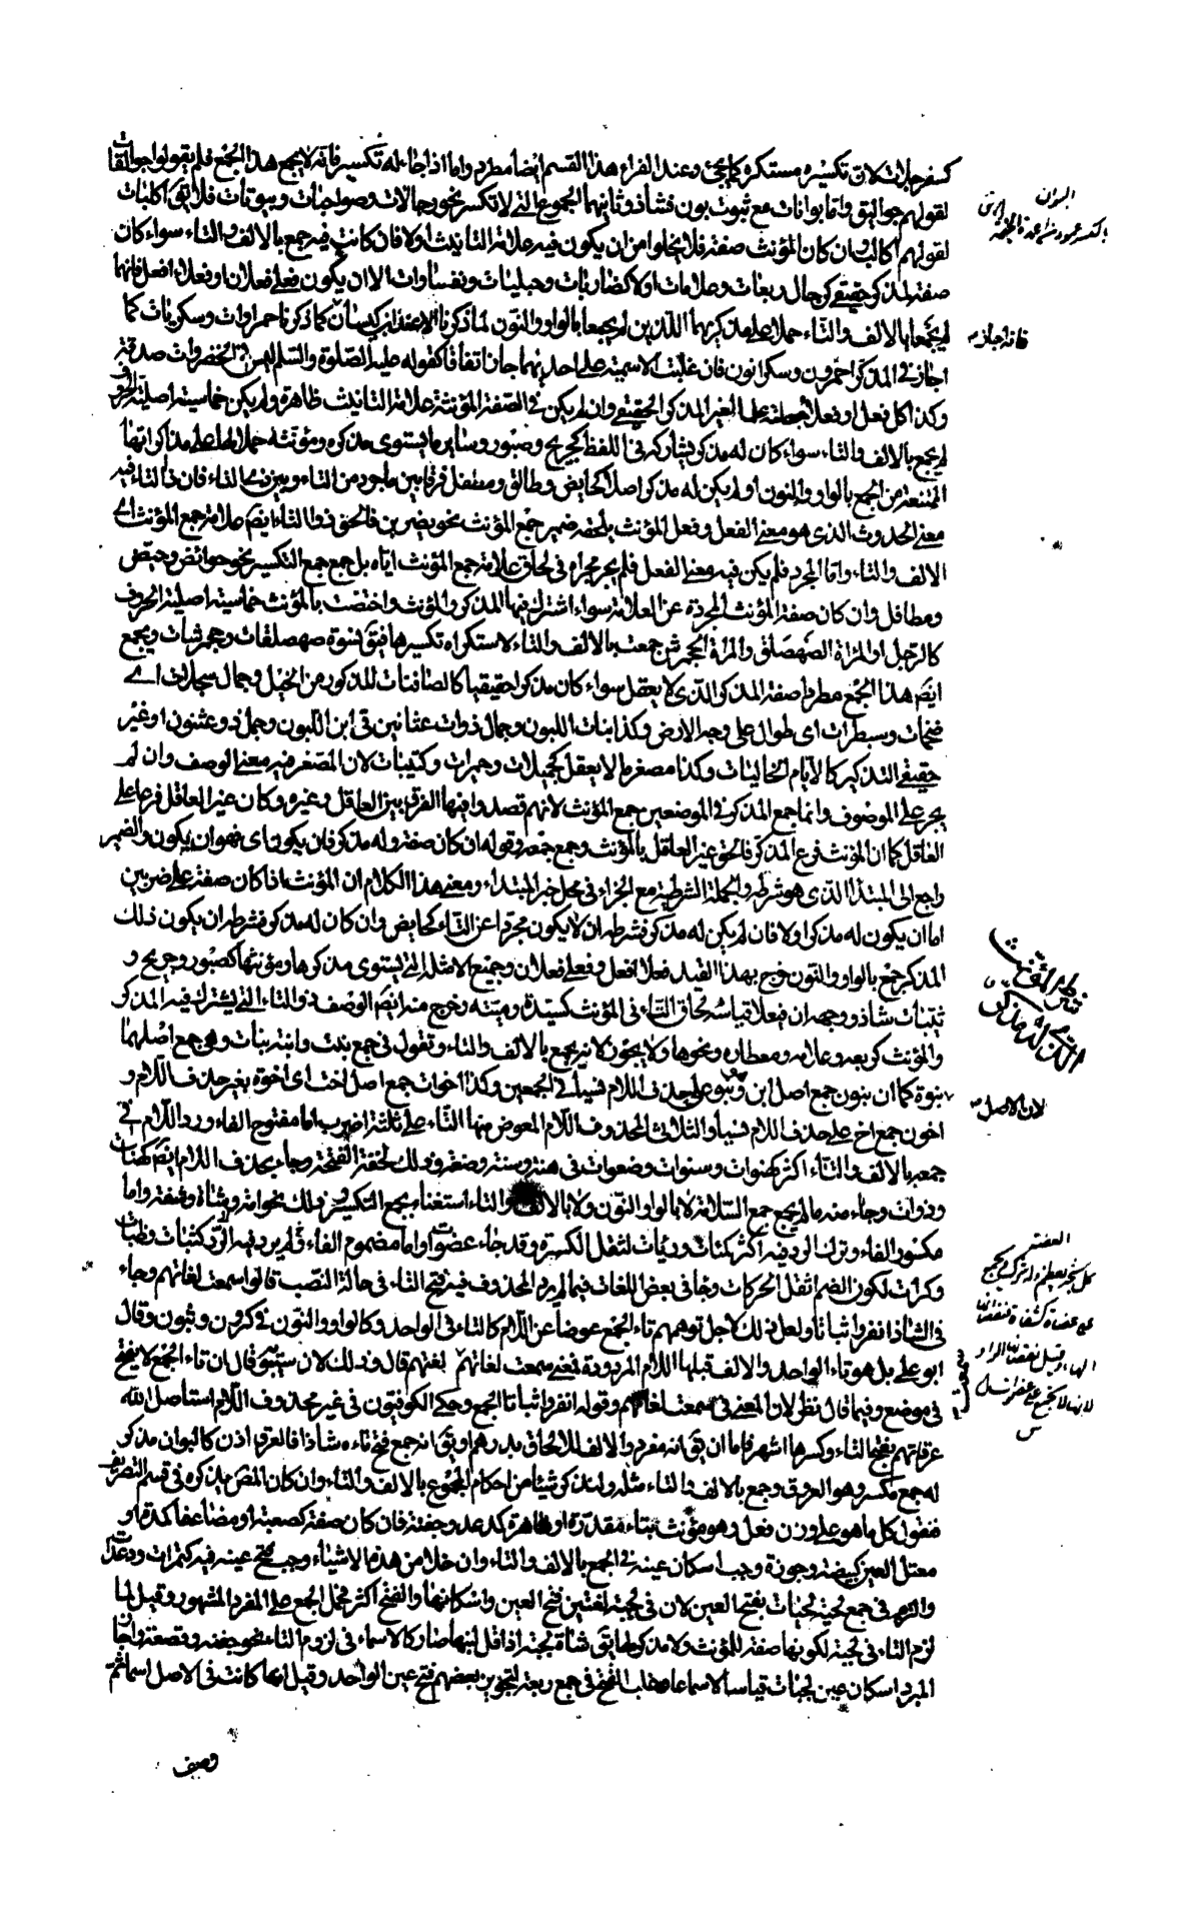 كسفرجلات لان تكسيره مستكره كما يجئ وعند الفراء هذا القسم ايضا مطرد واما اذا جاء له تكسير فانه لا يجمع هذا الجمع فلم يقولوا جوالقات
لقولهم جواليق واما بوانات مع ثبوت بون فشاذ وثانيهما الجموع التي لا تكسر نحو رجالات وصواحبات وبيوتات فلا يقى اكلبات
لقولهم اكالب وان كان المؤنث صفة فلا يخلوا من ان يكون فيه علامة التانيث اولا فان كانت فيه جمع بالالف والتاء سواء كان
صفة لمذكر حقيقي كرجال ربعات وعلامات اولا كضاربات وحبليات ونفساوات الا ان يكون فعلى فعلان او فعلاء افعل فانهما
لم يجمعا بالالف والتاء حملا على مذكريهما اللذين لم يجمعا بالواو والنون لما ذكرنا ابن كيسان كما ذكرنا حمراوات وسكريات كما
اجاز في المذكر احمرون وسكرانون فان غلبت الاسمية على احدهما جاز اتفاقا كقوله عليه الصلوة والسلم ليس في الخضروات صدقة
وكذا كل فعلى او فعلاء الغير المذكر الحقيقي وان لم يكن في الصفة المؤنثة علامة التانيث ظاهرة ولم يكن خماسية اصلية الحروف
لم يجمع بالالف والتاء سواء كان له مذكر يشاركه في اللفظ كجريح وصبور وساير ما يستوى مذكره ومؤنثه حملا لها على مذكراتها
الممتنعة من الجمع بالواو والنون او لم يكن له مذكر اصلا كحايض وطالق ومطفل فرقا بين ما جرد من التاء وبين ذى التاء فان ذا التاء فيه
معنى الحدوث الذي هو معنى الفعل وفعل المؤنث يلحقه ضمير جمع المؤنث نحو يضربن فالحق ذو التاء ايضا علامة جمع المؤنث اى
الالف والتاء واما المجرد فلم يكن فيه معنى الفعل فلم يجر مجراه في لحاق علامة جمع المؤنث اياه بل جمع جمع التكسير نحو حوائض وحيض
ومطافل وان كان صفة المؤنث المجردة عن العلامة سواء اشترك فيها المذكر والمؤنث او اختصت بالمؤنث خماسية اصلية الحروف
كالرجل او المرأة الصهصلق والمرأة الجحمرش جمعت بالالف والتاء لاستكراه تكسيرها فيق نسوة صهصلقات وجحمرشات ويجمع
ايضا هذا الجمع مطردا صفة المذكر الذي لا يعقل سواء كان مذكرا حقيقيا كالصافنات للمذكور من الخيل وجمال سبحلات اى
ضخمات وسبطرات اى طوال على وجه الارض وكذا بنات اللبون وجمال ذوات عثانين في ابن اللبون وجمل ذو عثنون او غير
حقيقي التذكير كالايام الخاليات وكذا مصغر ما لا يعقل كجميلات وحميرات وكتيبات لان المصغر فيه معنى الوصف وان لم
يجر على الموصوف وانما جمع المذكر في الموضعين جمع المؤنث لانهم قصدوا فيها الفرق بين العاقل وغيره وكان غير العاقل فرعا على
العاقل كما ان المؤنث فرع المذكر فالحق غير العاقل بالمؤنث وجمع جمعه وقوله ان كان صفة وله مذكر فان يكون اى فهو ان يكون والضمير
راجع الى المبتدأ الذى هو شرطه والجملة الشرطية مع الجزاء في محل خبر المبتداء ومعنى هذا الكلام ان المؤنث اذا كان صفة على ضربين
اما ان يكون له مذكر اولا فان لم يكن له مذكر فشرطه ان لا يكون مجردا عن التاء كحايض وان كان له مذكر فشرطه ان يكون ذلك
المذكر جمع بالواو والنون خرج بهذا القيد فعلاء افعل وفعلى فعلان وجميع الامثلة التي يستوى مذكرها ومؤنثها كصبور وجريح و
ثيبات شاذ ووجهه ان فيعلا قياسه لحاق التاء في المؤنث كسيدة وميتة وخرج منه ايضا الوصف ذو التاء التي يشترك فيه المذكر
والمؤنث كربعة وعلامة ومعطارة ونحوها ولا يجوز لانه يجمع بالالف والتاء وتقول في جمع بنت وابنة بنات وهي جمع اصلهما
بنوة كما ان بنون جمع اصل ابن وهو بنو على حذف اللام نسيا في الجمعين وكذا اخوات جمع اصل اخت اى اخوة بغير حذف اللام و
اخون جمع اخ على حذف اللام نسيا والثلاثى المحذوف اللام المعوض منها التاء على ثلثة اضرب اما مفتوح الفاء ورد اللام في
جمعه بالالف والتاء اكثر كهنوات وسنوات وضعوات في هنة وسنة وضعة وذلك لخفة الفتحة وجاء بحذف اللام ايضا كهنات
وذوات وجاء منه ما لم يجمع جمع السلامة لا بالواو والنون ولا بالالف والتاء استغناء بجمع التكسير وذلك نحو امة وشاة وشفة واما
مكسور الفاء وترك الرد فيه اكثر كمئات ورئات لثقل الكسرة وقد جاء عضوات واما مضموم الفاء فلم يرد فيه الرد كثبات وظبات
وكرات لكون الضم اثقل الحركات وجاء في بعض اللغات فيما لم يرد المحذوف فيه فتح التاء في حالة النصب قالوا سمعت لغاتهم وجاء
في الشاذ انفروا ثباتا ولعل ذلك لاجل توهمهم تاء الجمع عوضا عن اللام كالتاء في الواحد وكالواو والنون في كرون وثبون وقال
ابو على بل هو تاء الواحد والالف قبلها اللام المردودة فمعنى سمعت لغاتهم لغتهم قال وذلك لان سيبويه قال ان تاء الجمع لا يفتح
في موضع وفيما قال نظر لان المعنى في سمعت لغاتهم وقوله انفروا ثباتا الجمع وحكى الكوفيون في غير محذوف اللام استاصل الله
عرقاتهم بفتح التاء وكسرها اشهر فاما ان يق انه مفرد والالف للالحاق بدرهم او يق انه جمع فتح تاءه شاذا فالعرق اذن كالبوان مذكر
له جمع مكسر وهو العروق وجمع بالالف والتاء مثله ولنذكر شيئا من احكام المجموع بالالف والتاء وان كان المص يذكره في قسم التصريف
فنقول كل ما هو على وزن فعل وهو مؤنث بتاء مقدرة او ظاهرة كدعد وجفنة فان كان صفة كصعبة او مضاعفا كمدة او
معتل العين كبيضة وجوزة وجب اسكان عينه في الجمع بالالف والتاء وان خلا من هذه الاشياء وجب فتح عينه فيه كتمرات ودعدات
والتزم في جمع لجبة لجبات بفتح العين لان في لجبة لغتين فتح العين واسكانها والفتح اكثر فحمل الجمع على المفرد المشهور وقيل لما
لزم التاء في لجبة لكونها صفة للمؤنث ولا مذكر لها يق شاة لجبة اذا قل لبنها صار كالاسماء في لزوم التاء نحو جفنة وقصعة واجاز
المبرد اسكان عين لجبات قياسا لا سماعا وغلب الفتح في جمع ربعة لتجويز بعضهم فتح عين الواحد وقيل انها كانت في الاصل اسما ثم
وصف
البوان
فانه اجاز
لان الاصل